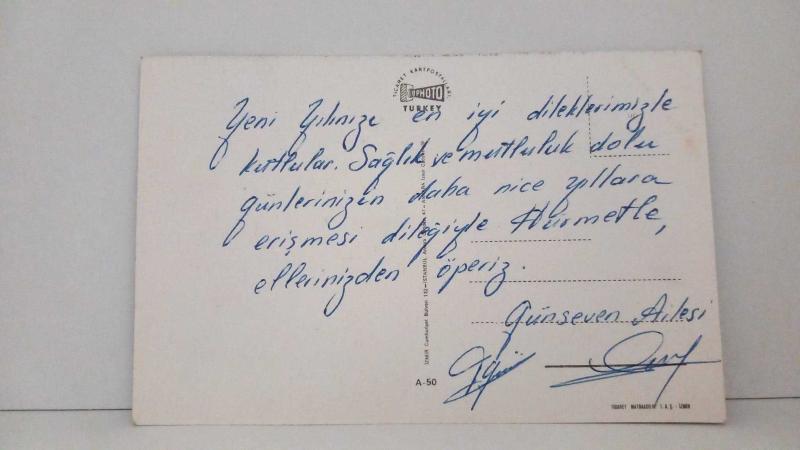 TİCARET KARTPOSTALLARI
PHOTO
TURKEY
Yeni Yılınızı en iyi dileklerimizle
kutlular. Sağlık ve mutluluk dolu
günlerinizin daha nice yıllara
erişmesi dileğiyle Hürmetle,
ellerinizden öperiz.
Günseven Ailesi
A-50
TİCARET MATBAACILIK T.A.Ş. - İZMİR